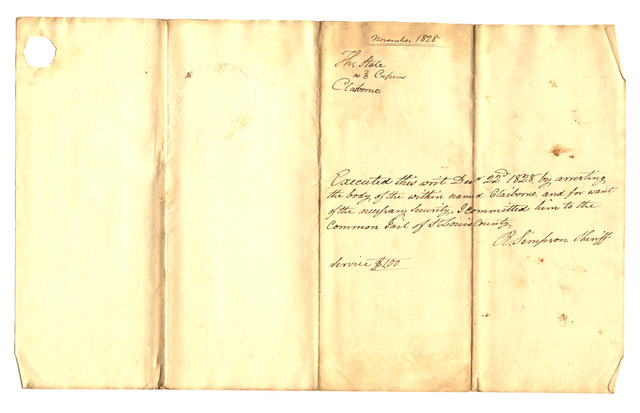 November 1828
The State
vs } Capias
Claiborne
Executed this writ Decr 22d 1828, by arresting
the body of the within named Claiborne, and for want
of the necessary Security, I committed him to the
Common Jail of St Louis County,
R. Simpson Sheriff
Service $1,00